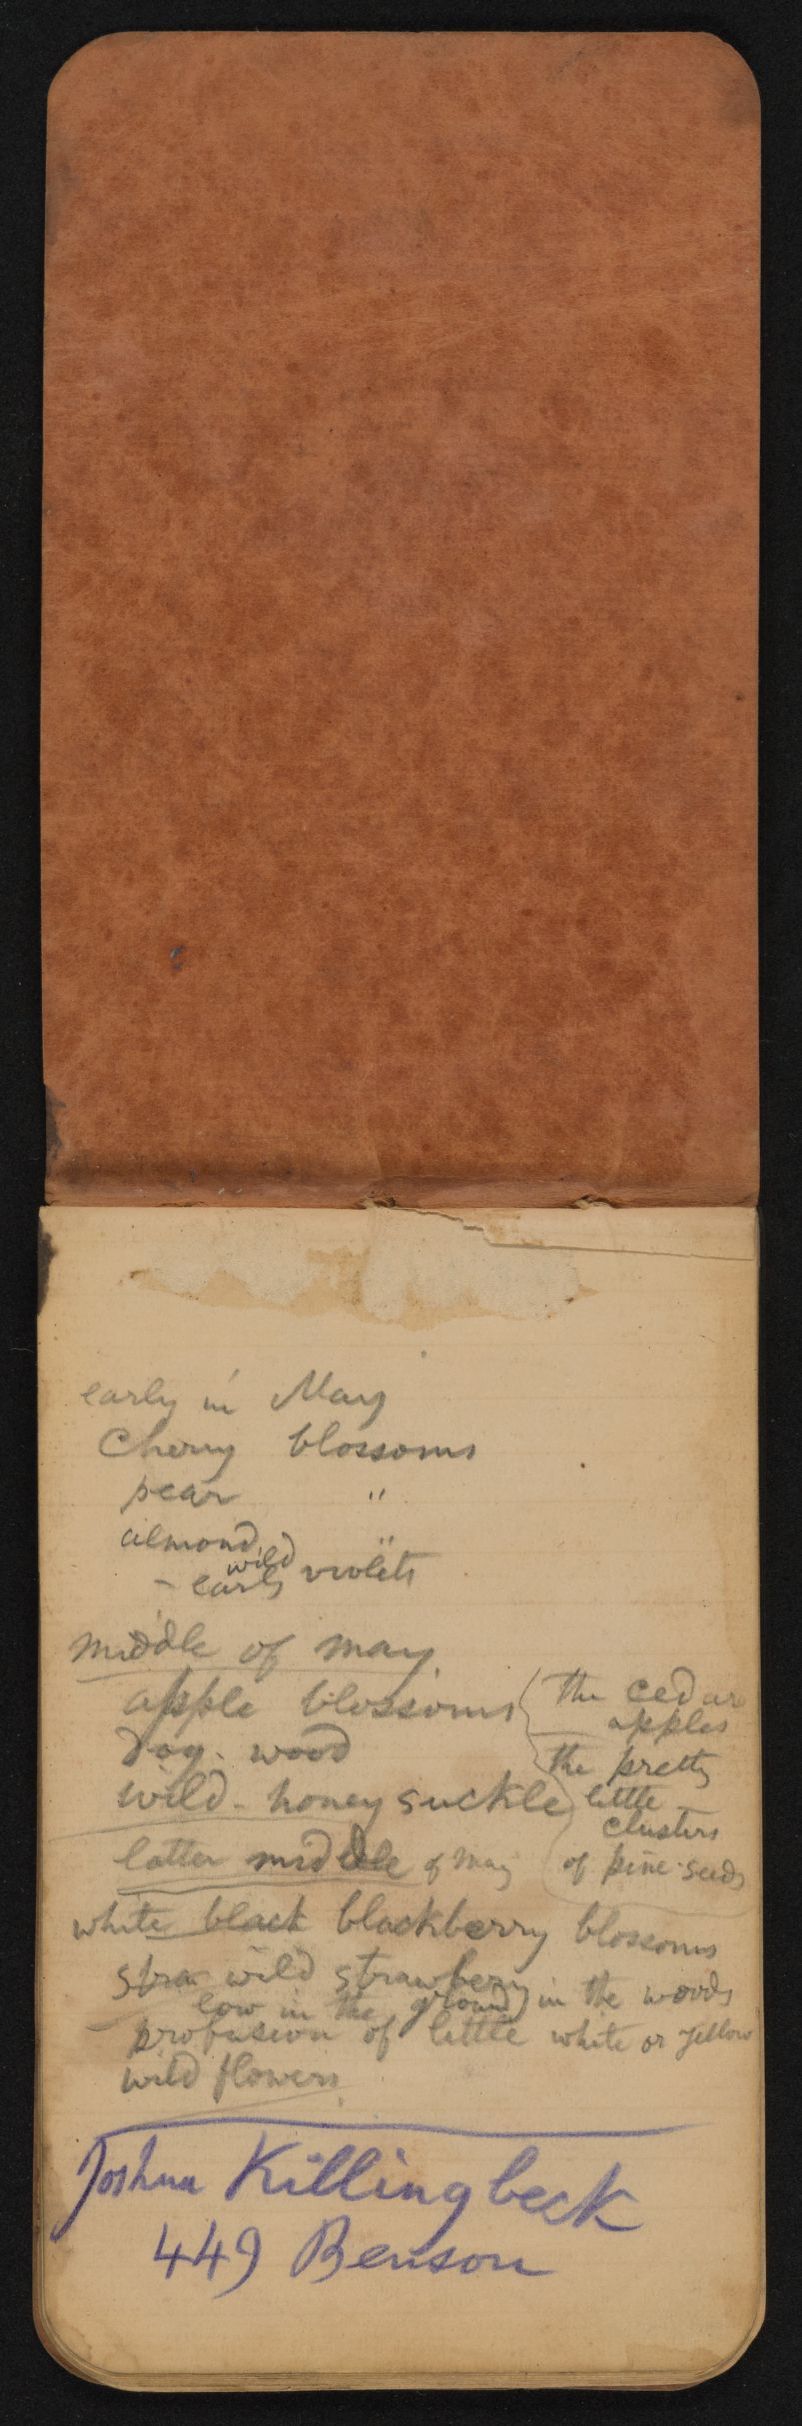 early in May
Cherry blossoms
pear "
almond "
wild
- early violets
middle of may
apple blossoms
dog-wood
wild-honeysuckle
the cedar
apples
the pretty
little
clusters
of pine-seeds
latter middle of may
white black blackberry blossoms
stra wild strawberry in the woods
low in the ground
profusion of little white or yellow
wild flowers
Joshua Killingbeck
449 Benson